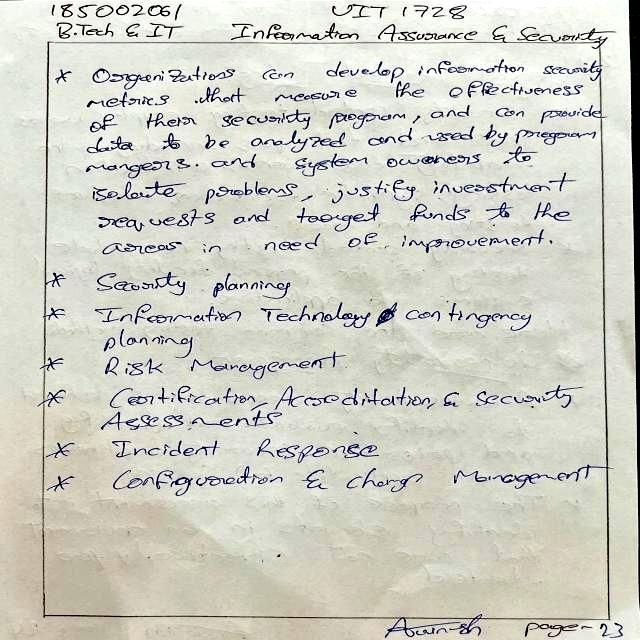 185002061 UIT 1728
B.Tech & IT Information Assurance & Security
* Organizations can develop information security
metrics that measure the effectiveness
of their security program, and can provide
data to be analyzed and used by program
mangers. and system owners to
isolate problems, justify investment
requests and target funds to the
areas in need of improvement.
* Security planning
* Information Technology contingency
planning
* Risk Management
* Certification, Accreditation, & security
Assessments
* Incident Response
* Configuration & change Management
page-23